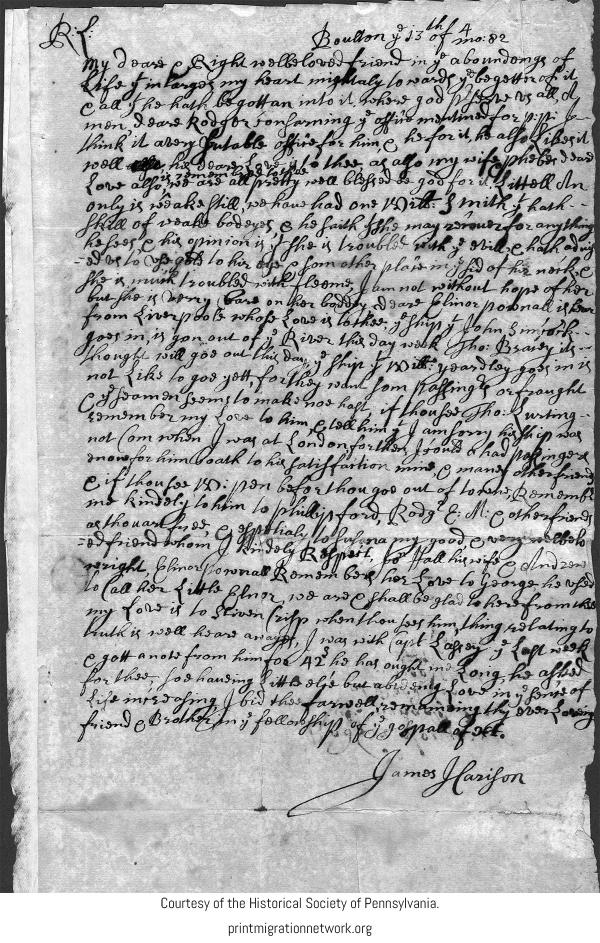 R: L:
Boulton ye 13th of 4 mo: 82
My deare & Right welbeloved friend in ye aboundings of
Life yt inlarges my heart mightaly towards ye begetter of it
& all yt he hath begottan into it, where god preserve us all, A
men, deare Rodger consarning ye office mentined for
think it a very sutable office for him, & he for it, he also Likes it
well his deare Love is to thee as also my wife, phebes deare
is remembred to thee
Love also, we are all pretty well blessed be god for it, Littell An
only is weake still, we have had one Will: Smith yt hath
skill of weake bodeyes, & he saith yt she may recover for anything
he sees & his opinion is yt she is troubled with ye evill, & hath advis
-ed us to to her eye & som other place in ye sid of her neck, &
she is much troubled with fleeme, I am not without hope of her
but she is very on her boddy, deare Elinor pownall is hear
from Liverpoole whose Love is to thee, ye ship yt John Simcock
goes in, is gon out of ye River this day week Tho: Brasey its
thought will goe out this day, ye ship yt Will: yeardley goes in is
not Like to goe yett, for they want som passingrs or fraught
& ye seamen seems to make noe hast, if thou see Tho: Lurting
remember my Love to him & tell him yt I am sorry his ship was
not Com when I was at London for then I could a had passingers
enow for him boath to his satisfaction mine & maney other friends
& if thou see W: pen befor thou goe out of towne, Remember
me kindely to him to phillip ford, Rodgr & M: & other friends
as thou art free, & espetialy to Susana my good & very welbelo
-ed friend whom I kindely Respect, Hall his wife & Andrew
wright Elinor pownall Remembers her Love to George he used
to Call her Little Elnor, we are & shall be glad to here from thee
my Love is to Steven Crisp when thou sees him, thing relating to
truth is well heare awayes, I was with Capt Lassey ye Last week
& gott a note from him for 42s he has ought me Long, he asked
for thee, soe haveing Little else but abideing Love in ye sense of
Life increasing, I bid thee farwell, remaineing thy ever Loveing
friend & Brother in ye fellowship of ye gospall of
James Harison
Courtesy of the Historical Society of Pennsylvania.
printmigrationnetwork.org